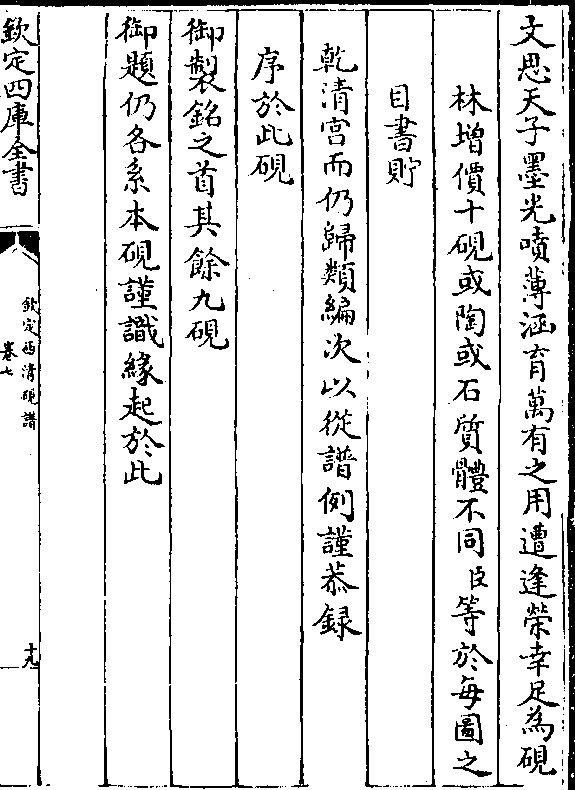 文思天子墨光噴薄涵育萬有之用遭逢榮幸足為硯
林增價十硯或陶或石質體不同臣等於每圖之
目書貯
乾清宫而仍歸類編次以從譜例謹恭録
序於此硯
御製銘之首其餘九硯
御題仍各系本硯謹識緣起於此
欽定四庫全書
欽定西清硯譜
卷七
十九